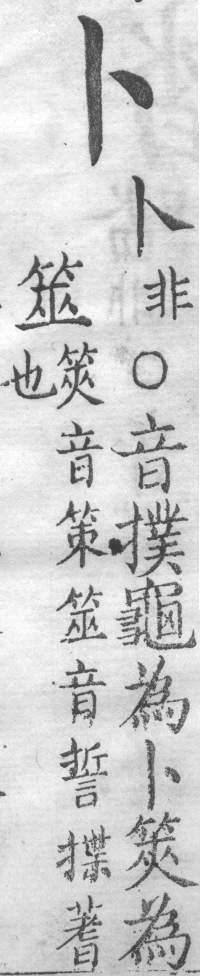 卜
卜非○音撲龜為卜筴為
筮筴音策筮音誓揲蓍
也